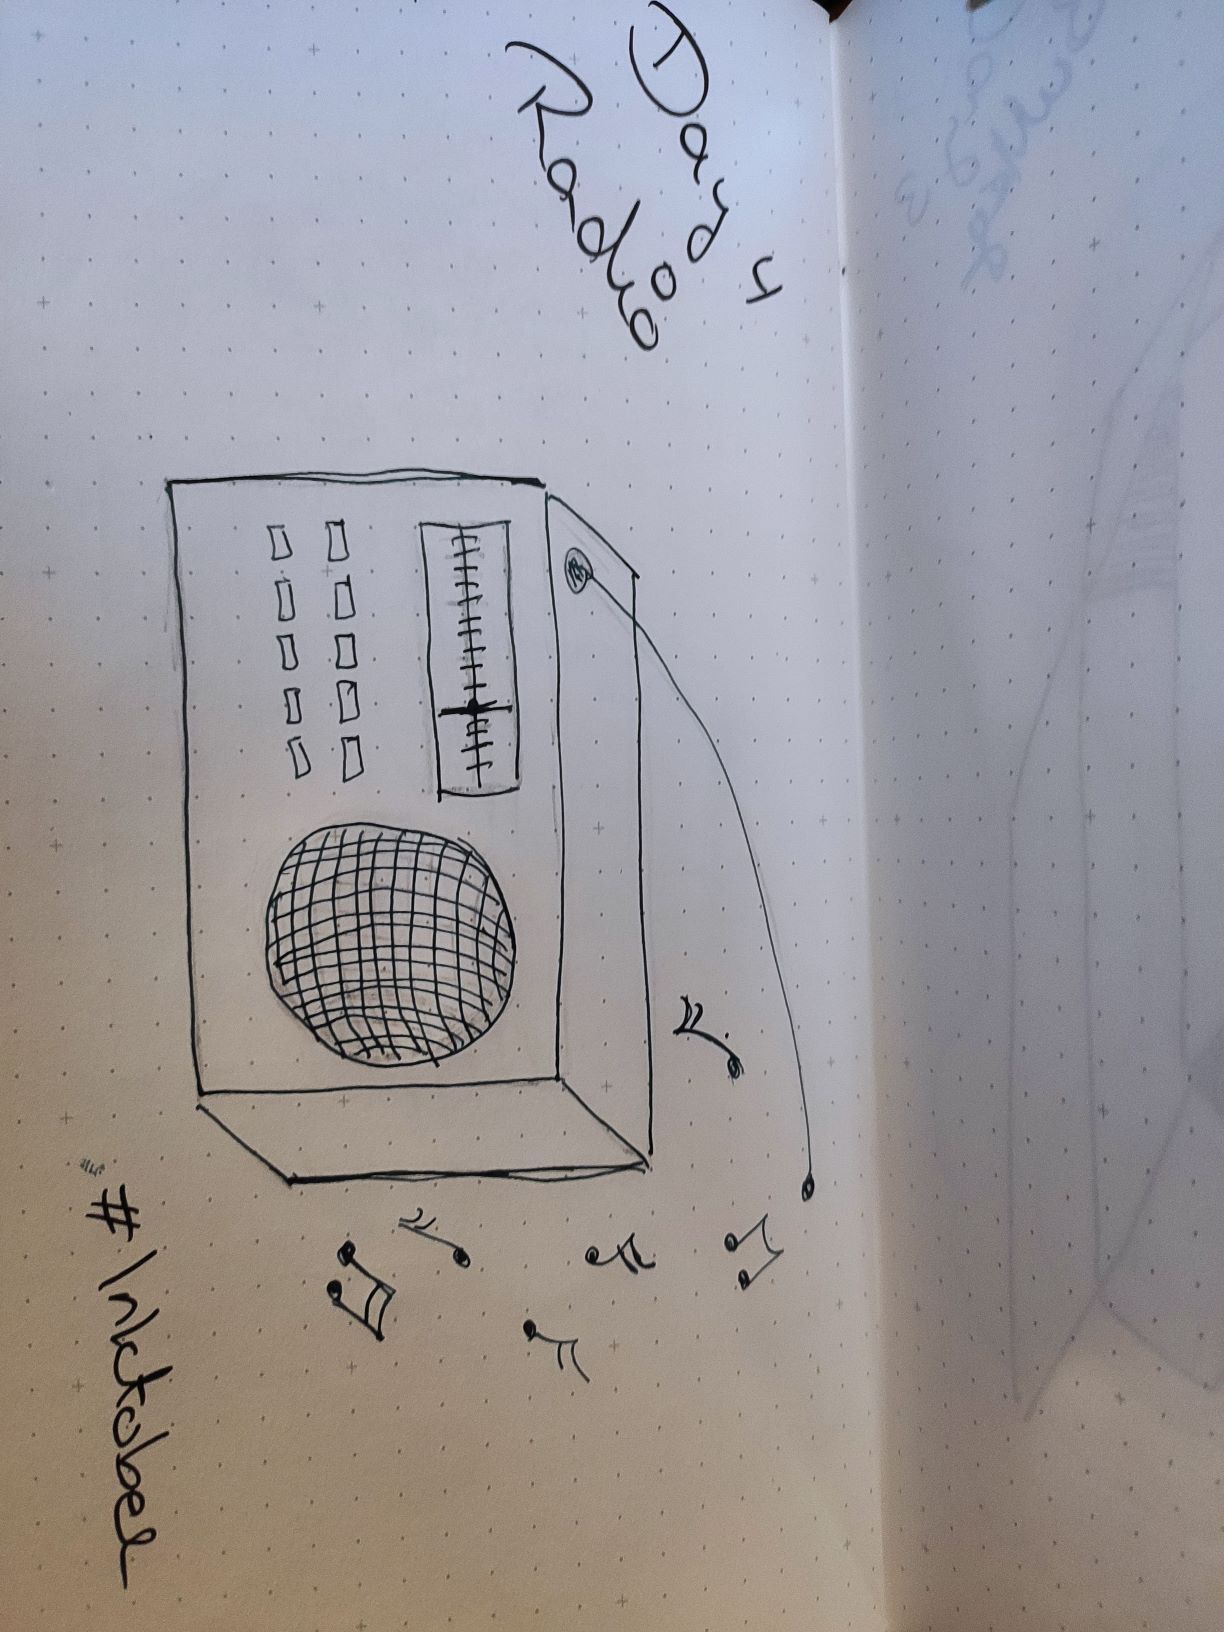 Day 4
Radio
#Inktober